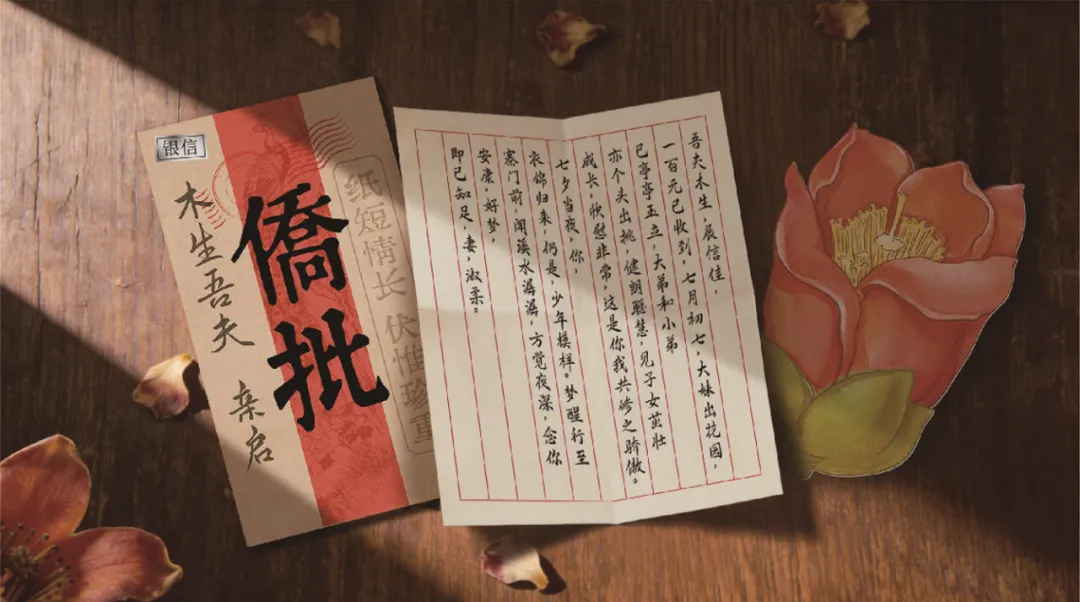 银信
木生吾夫 亲启
僑批
纸短情长 伏惟珍重
吾夫木生，展信佳，
一百元已收到，七月初七，大妹出花园，
已亭亭玉立，大弟和小弟
亦个头出挑，健朗聪慧，见子女茁壮
成长，欣慰非常，这是你我共修之骄傲。
七夕当夜，你，
衣锦归来，仍是，少年模样。梦醒行至
寨门前，闻溪水潺潺，方觉夜深，念你
安康，好梦，
即已知足，妻，淑柔。